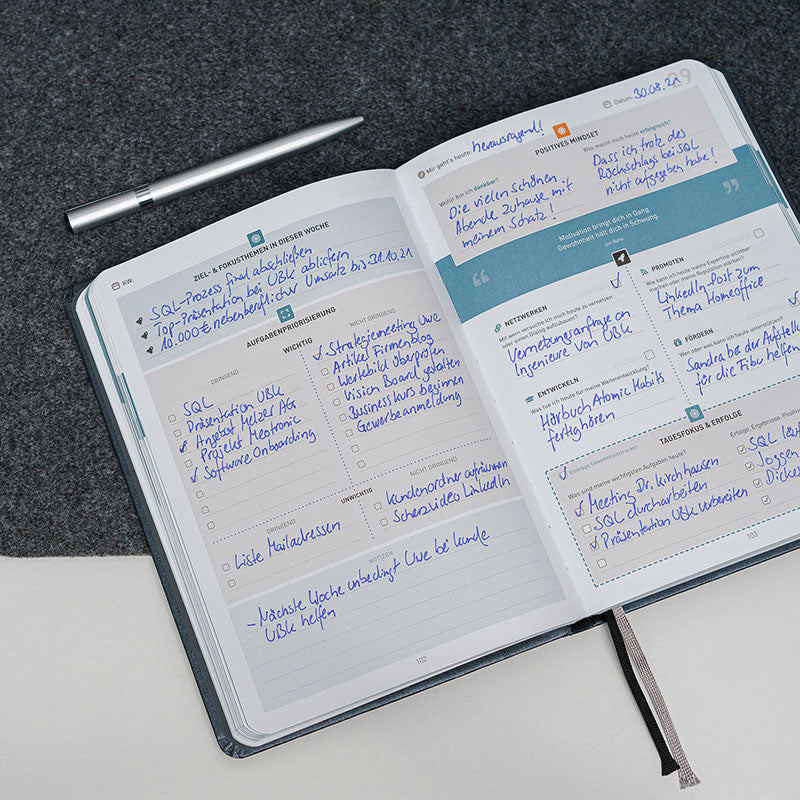 KW:
ZIEL- & FOKUSTHEMEN IN DIESER WOCHE
SQL-Prozess final abschließen
Top-Präsentation bei UBK abliefern
10.000 € nebenberuflicher Umsatz bis 31.10.21
AUFGABENPRIORISIERUNG
WICHTIG
DRINGEND
SQL
Präsentation UBK
Angebot Melzer AG
Projekt Meotronic
Software Onboarding
NICHT DRINGEND
Strategiemeeting Uwe
Artikel Firmenblog
Werkebild überprüfen
Vision Board gestalten
Businesskurs beginnen
Gewerbeanmeldung
UNWICHTIG
DRINGEND
Liste Mailadressen
NICHT DRINGEND
Kundenordner aufräumen
Scherzvideo LinkedIn
NOTIZEN
- Nächste Woche unbedingt Uwe bei Kunde
UBK helfen
102
29
Datum: 30.08.21
Mir geht's heute: herausragend!
POSITIVES MINDSET
Wofür bin ich dankbar?
Die vielen schönen
Abende zuhause mit
meinem Schatz!
Was macht mich heute erfolgreich?
Dass ich trotz des
Rückschlags bei SQL
nicht aufgegeben habe!
Motivation bringt dich in Gang.
Gewohnheit hält dich in Schwung.
Jim Rohn
NETZWERKEN
Mit wem versuche ich mich heute zu vernetzen
oder einen Dialog aufzubauen?
Vernetzungsanfrage an
Ingenieure von UBK
PROMOTEN
Wie kann ich heute meine Expertise sichtbar
machen oder meine Reputation stärken?
LinkedIn Post zum
Thema Homeoffice
ENTWICKELN
Was tue ich heute für meine Weiterentwicklung?
Hörbuch Atomic Habits
fertighören
FÖRDERN
Wen oder was kann ich heute unterstützen?
Sandra bei der Aufstell
für die Fibu helfen
TAGESFOKUS & ERFOLGE
Einträge Gewohnheitstracker
Was sind meine wichtigsten Aufgaben heute?
Meeting Dr. Kirchhausen
SQL durcharbeiten
Präsentation UBK vorbereiten
Erfolge, Ergebnisse, Positiv
SQL läuf
Joggen
Dicke
103